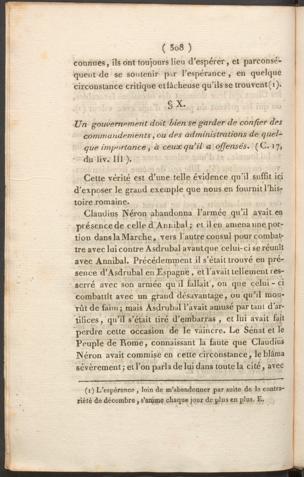 ( 308 )
connues, ils ont toujours lieu d'espérer, et parconsé-
quent de se soutenir par l'espérance, en quelque
circonstance critique et fâcheuse qu'ils se trouvent (1).
§ X.
Un gouvernement doit bien se garder de confier des
commandements, ou des administrations de quel-
que importance, à ceux qu'il a offensés. (C. 17,
du liv. III).
Cette vérité est d'une telle évidence qu'il suffit ici
d'exposer le grand exemple que nous en fournit l'his-
toire romaine.
Claudius Néron abandonna l'armée qu'il avait en
présence de celle d'Annibal; et il en amena une por-
tion dans la Marche, vers l'autre consul pour combat-
tre avec lui contre Asdrubal avant que celui-ci se réunît
avec Annibal. Précédemment il s'était trouvé en pré-
sence d'Asdrubal en Espagne, et l'avait tellement res-
serré avec son armée qu'il fallait, ou que celui-ci
combattît avec un grand désavantage, ou qu'il mou-
rût de faim; mais Asdrubal l'avait amusé par tant d'ar-
tifices, qu'il s'était tiré d'embarras, et lui avait fait
perdre cette occasion de le vaincre. Le Sénat et le
Peuple de Rome, connaissant la faute que Claudius
Néron avait commise en cette circonstance, le blâma
sévèrement; et l'on parla de lui dans toute la cité, avec
(1) L'espérance, loin de m'abandonner par suite de la contra-
riété de décembre, s'anime chaque jour de plus en plus. E.